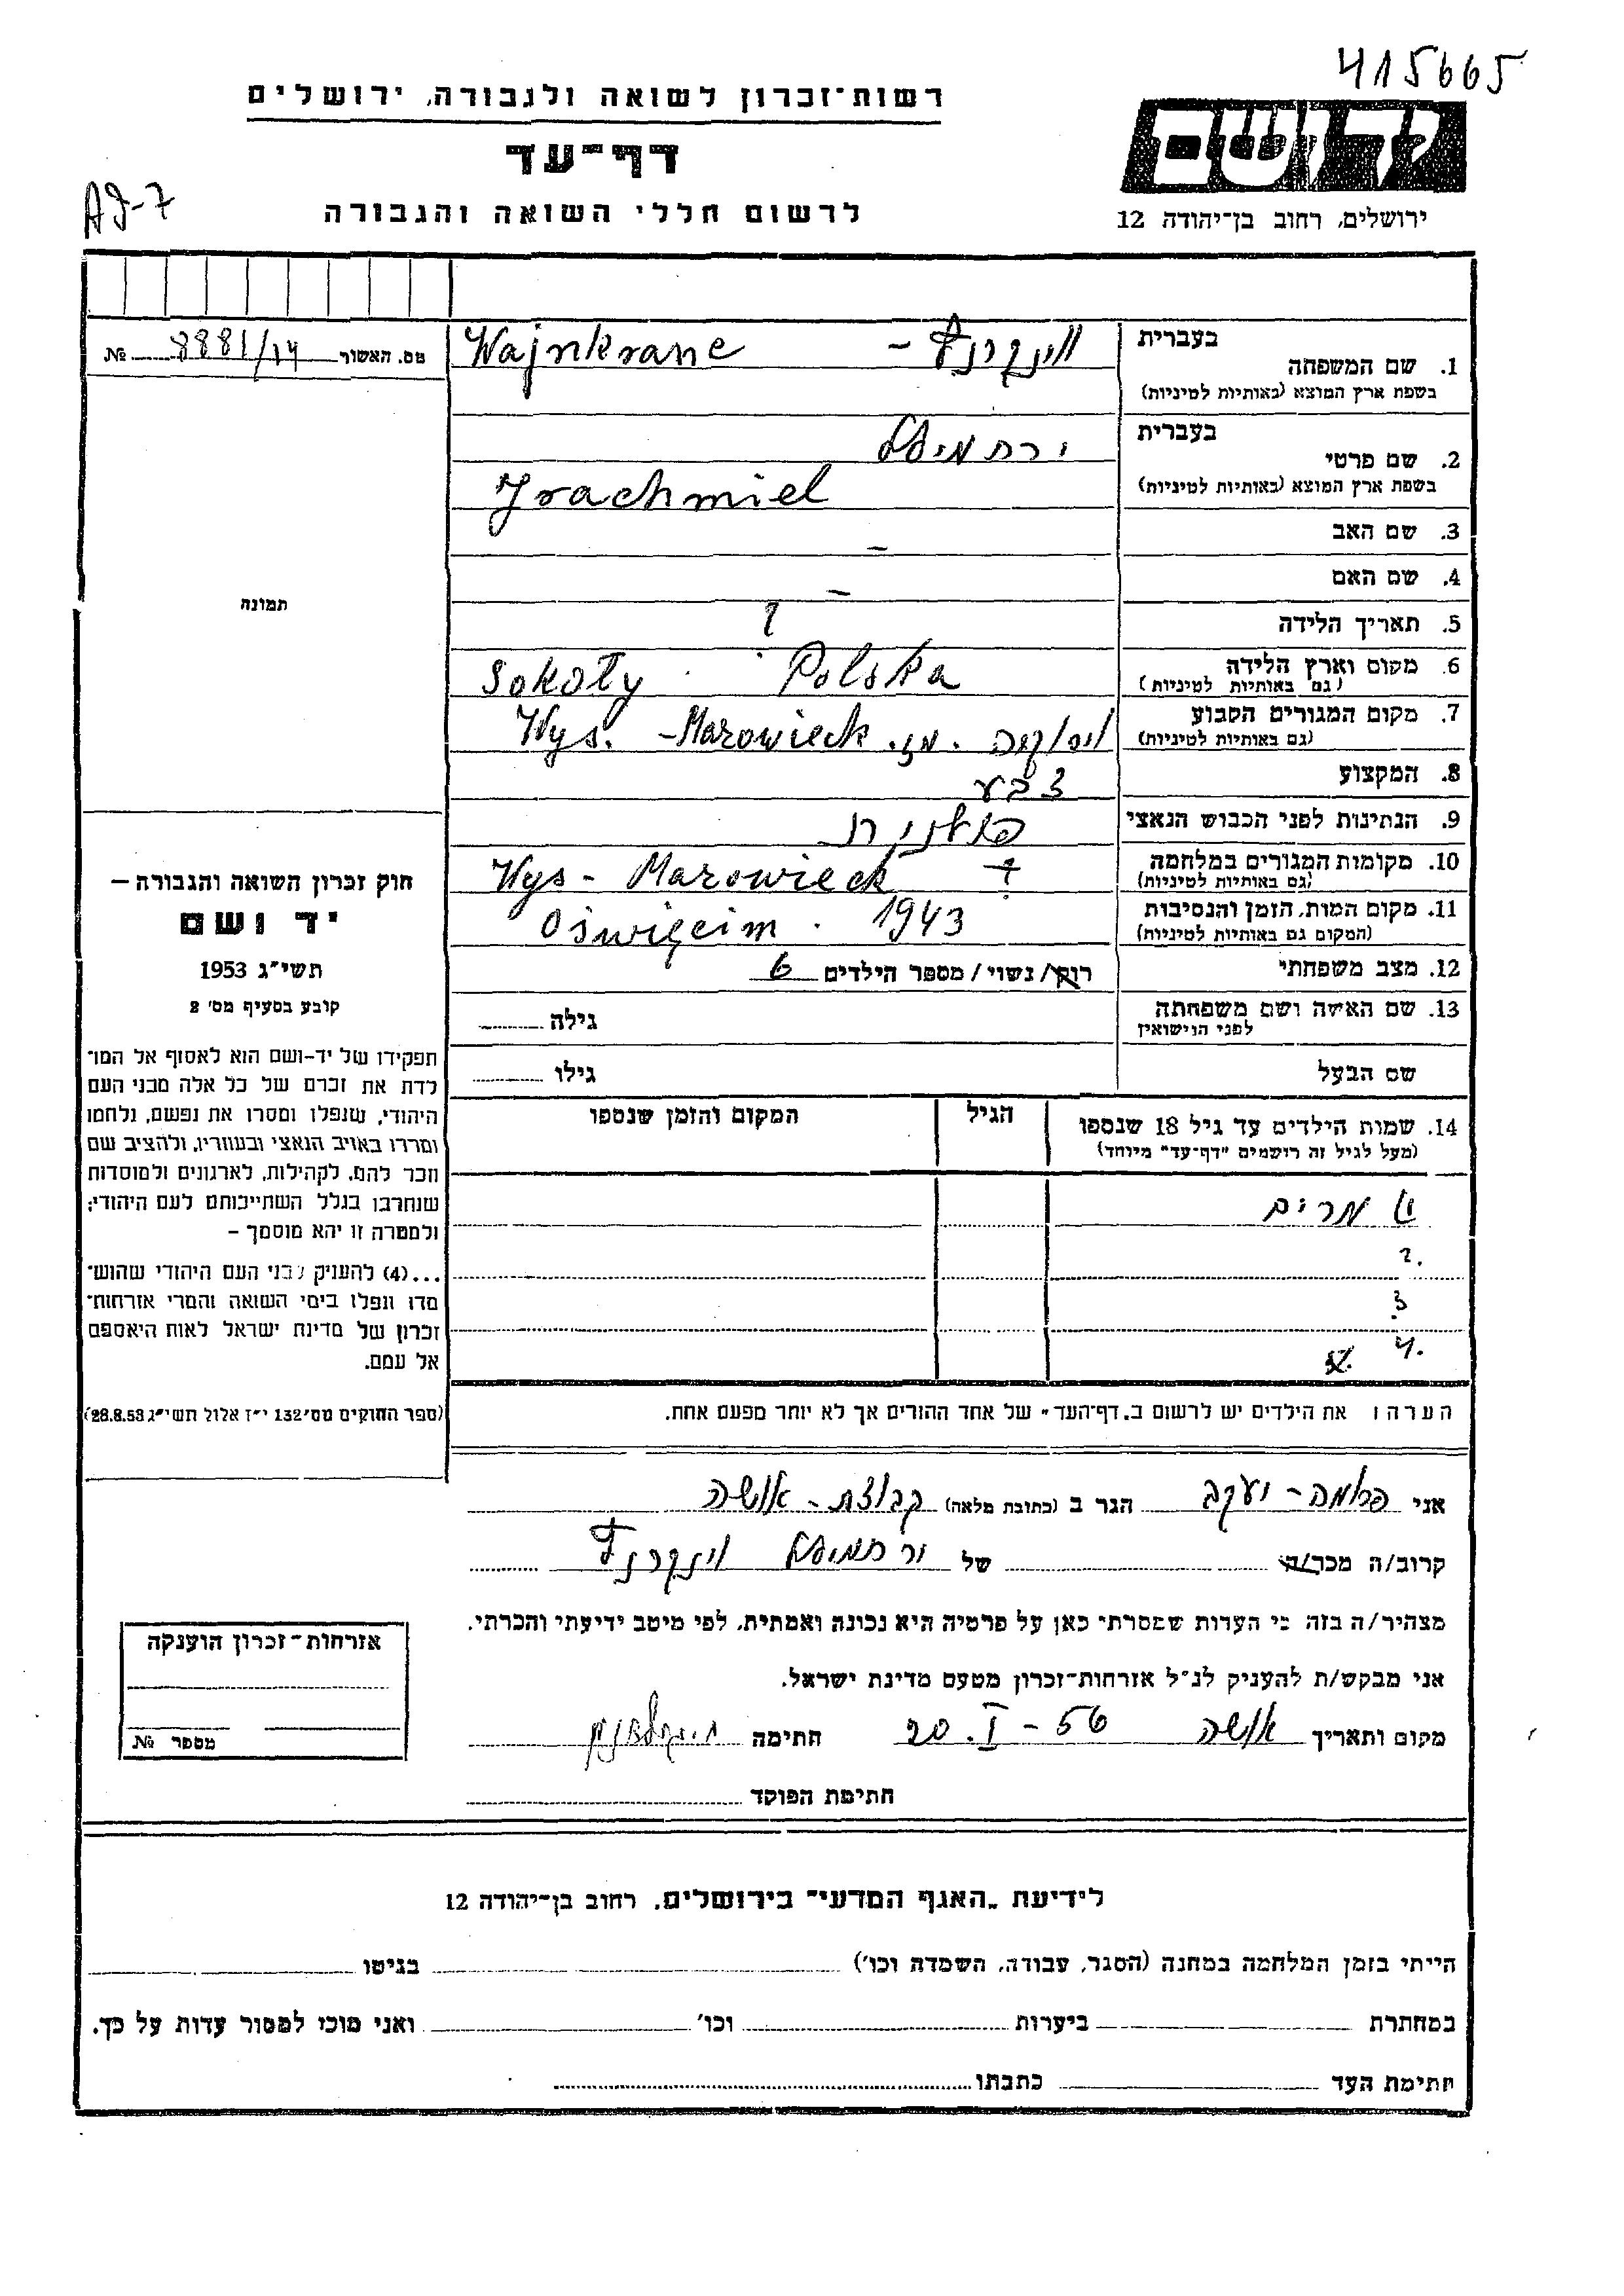 415665
רשות־זכרון לשואה ולגבורה, ירושלים
דף־עד
לרשום חללי השואה והגבורה
AJ-7
יד ושם
ירושלים, רחוב בן־יהודה 12
מס. האשור 8881/14 №
בעברית
1. שם המשפחה
בשפת ארץ המוצא (באותיות לטיניות)
Wajnkranc – וינקרנץ
בעברית
2. שם פרטי
בשפת ארץ המוצא (באותיות לטיניות)
ירחמיאל
Jrachmiel
3. שם האב –
4. שם האם –
5. תאריך הלידה ?
6. מקום וארץ הלידה
(גם באותיות לטיניות)
Sokoły Polska
7. מקום המגורים הקבוע
(גם באותיות לטיניות)
Wys. - Mazowieck ויסוקה .מז.
8. המקצוע צבע
9. הנתינות לפני הכבוש הנאצי פולנית
10. מקומות המגורים במלחמה
(גם באותיות לטיניות)
Wys - Mazowieck ?
11. מקום המות, הזמן והנסיבות
(המקום גם באותיות לטיניות)
Oświęcim . 1943
12. מצב משפחתי רווק/ נשוי / מספר הילדים 6
13. שם האשה ושם משפחתה
לפני הנישואין
גילה
שם הבעל גילו
14. שמות הילדים עד גיל 18 שנספו
(מעל לגיל זה רושמים "דף־עד" מיוחד)
הגיל
המקום והזמן שנספו
1) מרים
2.
3.
4.
הערה: את הילדים יש לרשום ב„דף־העד" של אחד ההורים אך לא יותר מפעם אחת.
תמונה
חוק זכרון השואה והגבורה –
יד ושם
תשי"ג 1953
קובע בסעיף מס' 2
תפקידו של יד-ושם הוא לאסוף אל המו־
לדת את זכרם של כל אלה מבני העם
היהודי, שנפלו ומסרו את נפשם, נלחמו
ומרדו באויב הנאצי ובעוזריו, ולהציב שם
וזכר להם, לקהילות, לארגונים ולמוסדות
שנחרבו בגלל השתייכותם לעם היהודי;
ולמטרה זו יהא מוסמך –
...(4) להעניק לבני העם היהודי שהוש־
מדו ונפלו בימי השואה והמרי אזרחות־
זכרון של מדינת ישראל לאות היאספם
אל עמם.
(ספר החוקים מס' 132 י"ז אלול תשי"ג 28.8.53)
אני פלומה - יעקב הגר ב (כתובת מלאה) קבוצת - אושה
קרוב/ה מכר/ה של ירחמיאל וינקרנץ
מצהיר/ה בזה כי העדות שמסרתי כאן על פרטיה היא נכונה ואמתית, לפי מיטב ידיעתי והכרתי.
אני מבקש/ת להעניק לנ"ל אזרחות־זכרון מטעם מדינת ישראל.
מקום ותאריך אושה 20. I - 56 חתימה
חתימת הפוקד
אזרחות־זכרון הוענקה
מספר №
לידיעת „האגף המדעי" בירושלים, רחוב בן־יהודה 12
הייתי בזמן המלחמה במחנה (הסגר, עבודה, השמדה וכו') בגיטו
במחתרת ביערות וכו' ואני מוכן למסור עדות על כך.
חתימת העד כתבתו